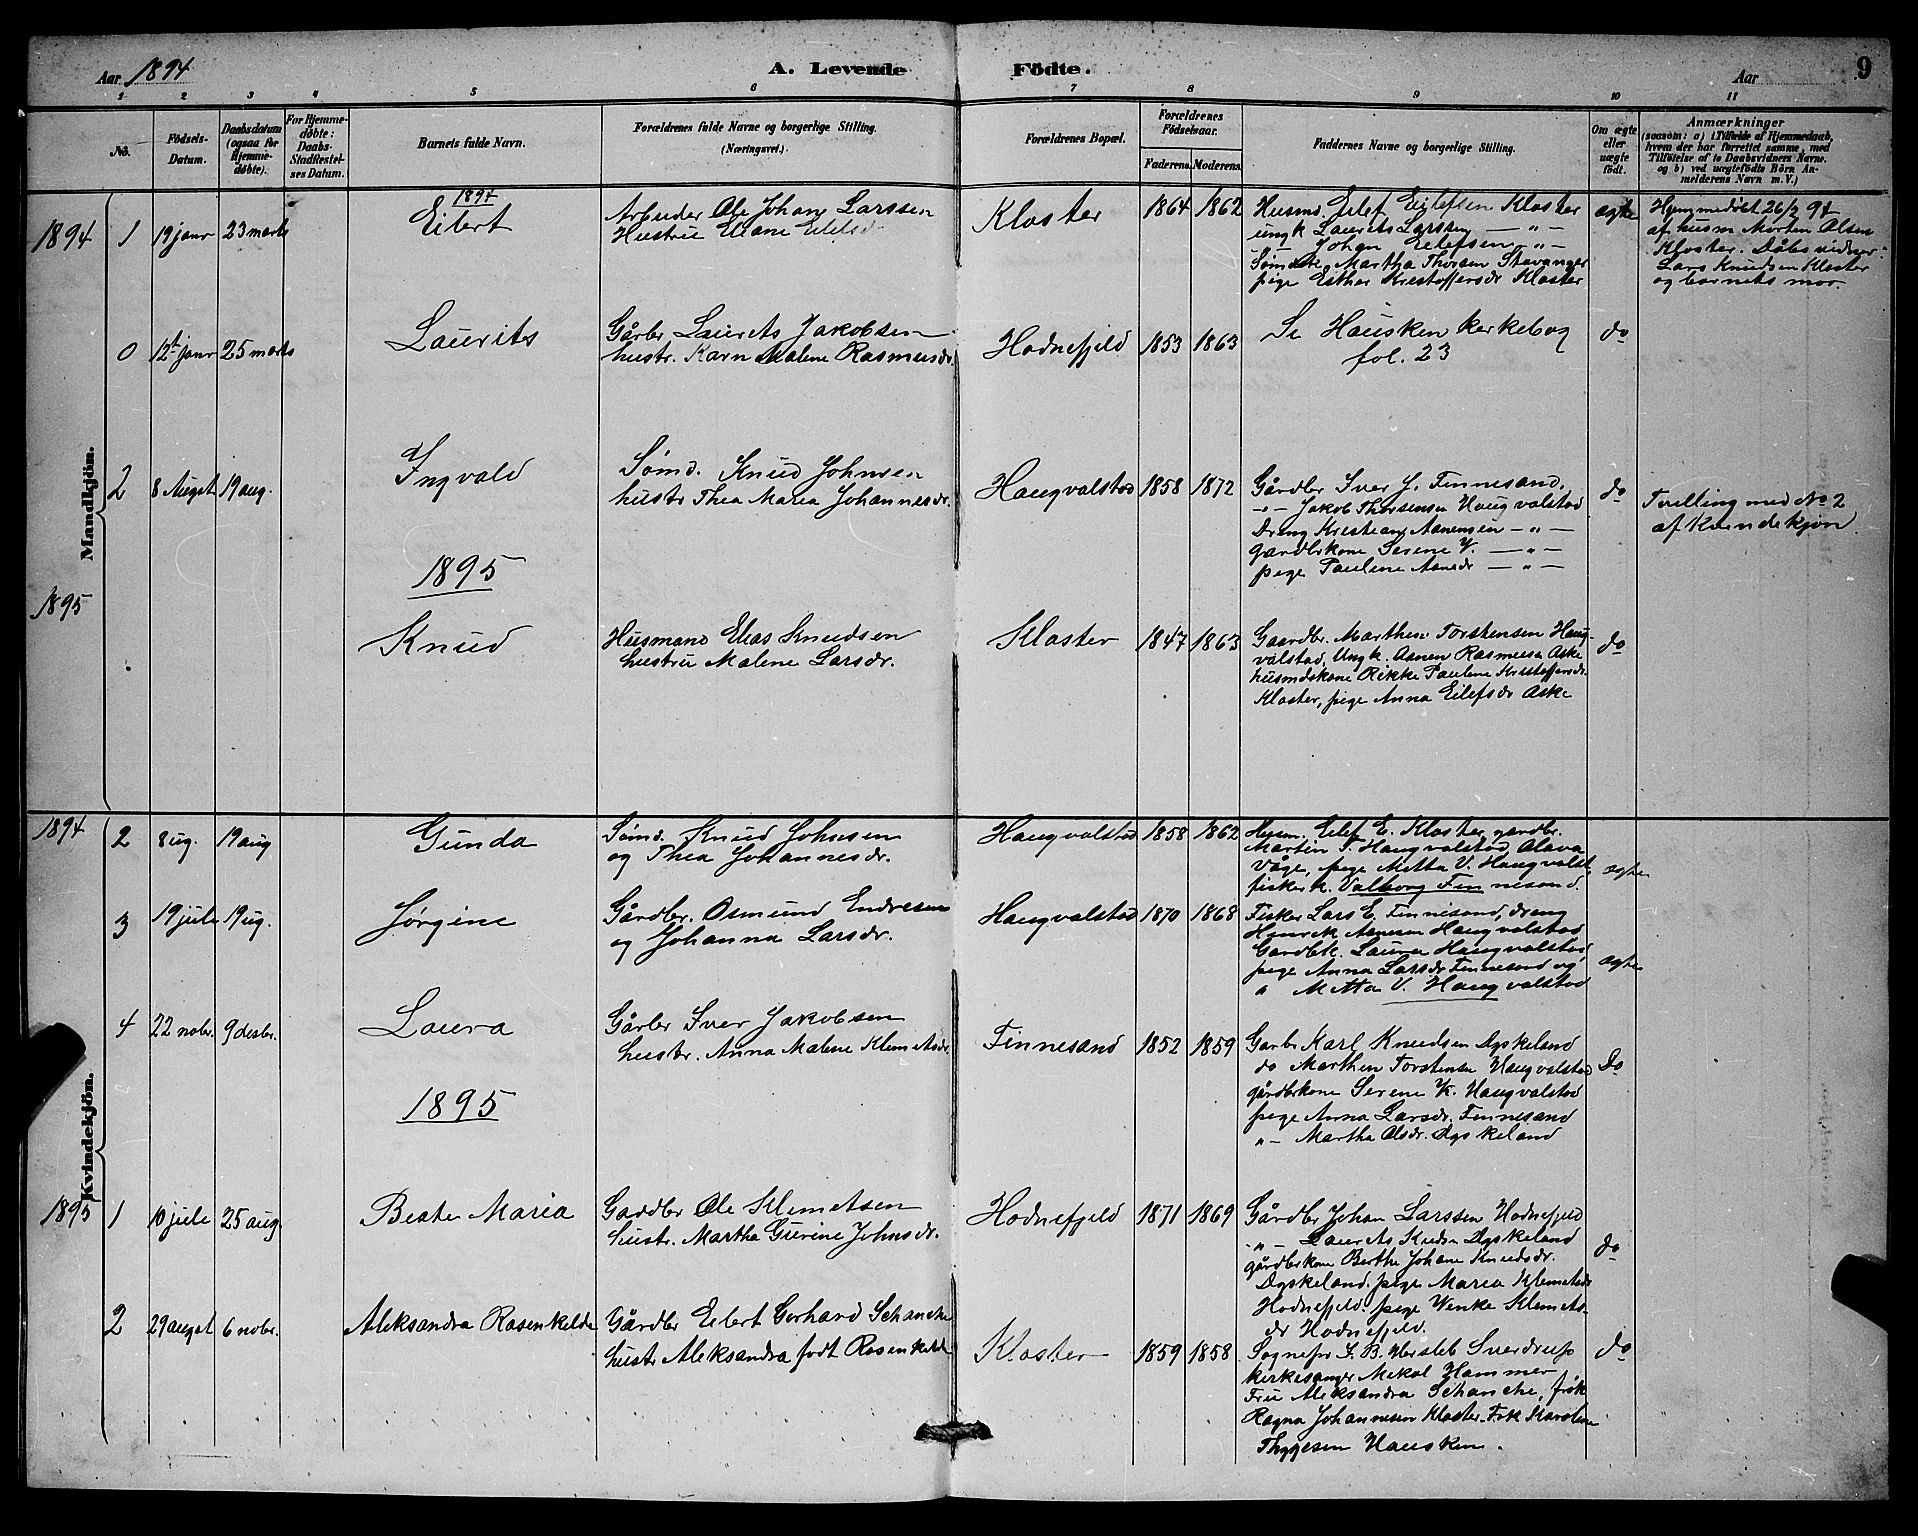 Aar 1894
A. Levende Födte.
Aar
9
1 2 3 4 5 6 7 8 9 10 11
No.
Födsels-Datum.
Daabsdatum (ogsaa for Hjemme-döbte).
For Hjemme-döbte: Daabs-Stadfæstel-ses Datum.
Barnets fulde Navn.
Forældrenes fulde Navne og borgerlige Stilling. (Næringsvei.)
Forældrenes Bopæl.
Forældrenes Födselsaar.
Faderens. Moderens.
Faddernes Navne og borgerlige Stilling.
Om ægte eller uægte födt.
Anmærkninger
(saasom: a) i Tilfælde af Hjemmedaab, hvem der har forrettet samme, med Tilföielse af to Daabsvidners Navne, og b) ved uægtefödte Börn An-melderens Navn m. V.)
Mandkjön.
1894
1894 1 19 janr 23 marts
Eilert
Arbeider Ole Johan Larssen
Hustru Eliane Eilefsd
Kloster 1864 1862
Husmd. Eilef Eilefsen Kloster
ungk Laurits Larssen — " —
" — Johan Eilefsen — " —
Martha Thorsen Stavanger
pige Esther Kristoffersdr Kloster
ægte
Hjemmedöbt 26/2 94
af husm Morten Olsen
Kloster. Dåbsvidner:
Lars Knudsen Kloster
og barnets mor.
0 12t janr 25 marts
Laurits
Gårbr Laurits Jakobsen
hustr. Karn Malene Rasmusdr.
Hodnefjeld 1853 1863
Se Hausken kirkebog
fol. 23
do
2 8 August 19 aug.
Ingvald
Sømd. Knud Johnsen
hustr Thea Maria Johannesdr.
Haugvalstad 1858 1872
Gårdbr Iver J. Finnesand,
- " - Jakob Thorsensen Haugvalstad
Dreng Kristian Aanensen — " —
gardbrkone Serene K. — " —
pige Pauline Aanesdr — " —
do
Tvilling med No 2
af Kvindekjøn
1895
1895
Knud
Husmand Elias Knudsen
hustru Malene Larsdr.
Kloster 1847 1863
Gaardbr. Marthin Torstensen Haug-
valstad, Ungk. Aanen Rasmusen Aske
husmdskone Rikke Pauline Kristoffersdr.
Kloster, pige Anna Eilefsdr Aske
do
Kvindekjön.
1894 2 8 ug. 19 aug
Gunda
Sømd. Knud Johnsen
og Thea Johannesdr.
Haugvalstad 1858 1862
Husm. Eilef E. Kloster, gardbr.
Martin T. Haugvalstad, Olava
Våge, pige Metta V. Haugvalst,
fisker k. Valborg Finnesand.
ægte
3 19 jule 19 ug.
Jørgine
Gårdbr. Osmund Endresen
og Johanna Larsdr.
Haugvalstad 1870 1868
Fisker Lars E. Finnesand, dreng
Henrik Aanensen Haugvalstad
Gardbk. Laura Haugvalstad
pige Anna Larsdr Finnesand og
" Metta V. Haugvalstad
ægte
4 22 nobr. 9 desbr.
Laura
Gårbr Iver Jakobsen
hustr. Anna Malene Klemetsdr.
Finnesand 1852 1859
Garbr Karl Knudsen Dyskeland
do Marthin Torstensen Haugvalstad
gårdbrkone Serene K. Haugvalstad
pige Anna Larsdr. Finnesand
" — Martha Olsdr. Dyskeland
Do
1895
1895 1 10 jule 25 aug.
Beate Maria
Gardbr Ole Klemetsen
hustr. Martha Gurine Johnsdr.
Hodnefjeld 1871 1869
Gårdbr Johan Larssen Hodnefjeld
- " — Laurits Knudsen Dyskeland
gårdbrkone Berthe Johane Knudsdr.
Dyskeland. pige Maria Klemetsdr
Hodnefjeld. pige Wenke Klemets-
dr Hodnefjeld.
do
2 29 august 6 nobr.
Aleksandra Rosenkilde
Gårdbr Eilert Gerhard Schanche
hustr Aleksandra født Rosenkilde
Kloster 1859 1858
Sognepr J. B. Hersleb Sverdrup
kirkesanger Mikal Hammer
Fru Aleksandra Schanche, frøk
Ragna Johannesen Kloster. Frk Karoline
Thygesen Hausken.
do